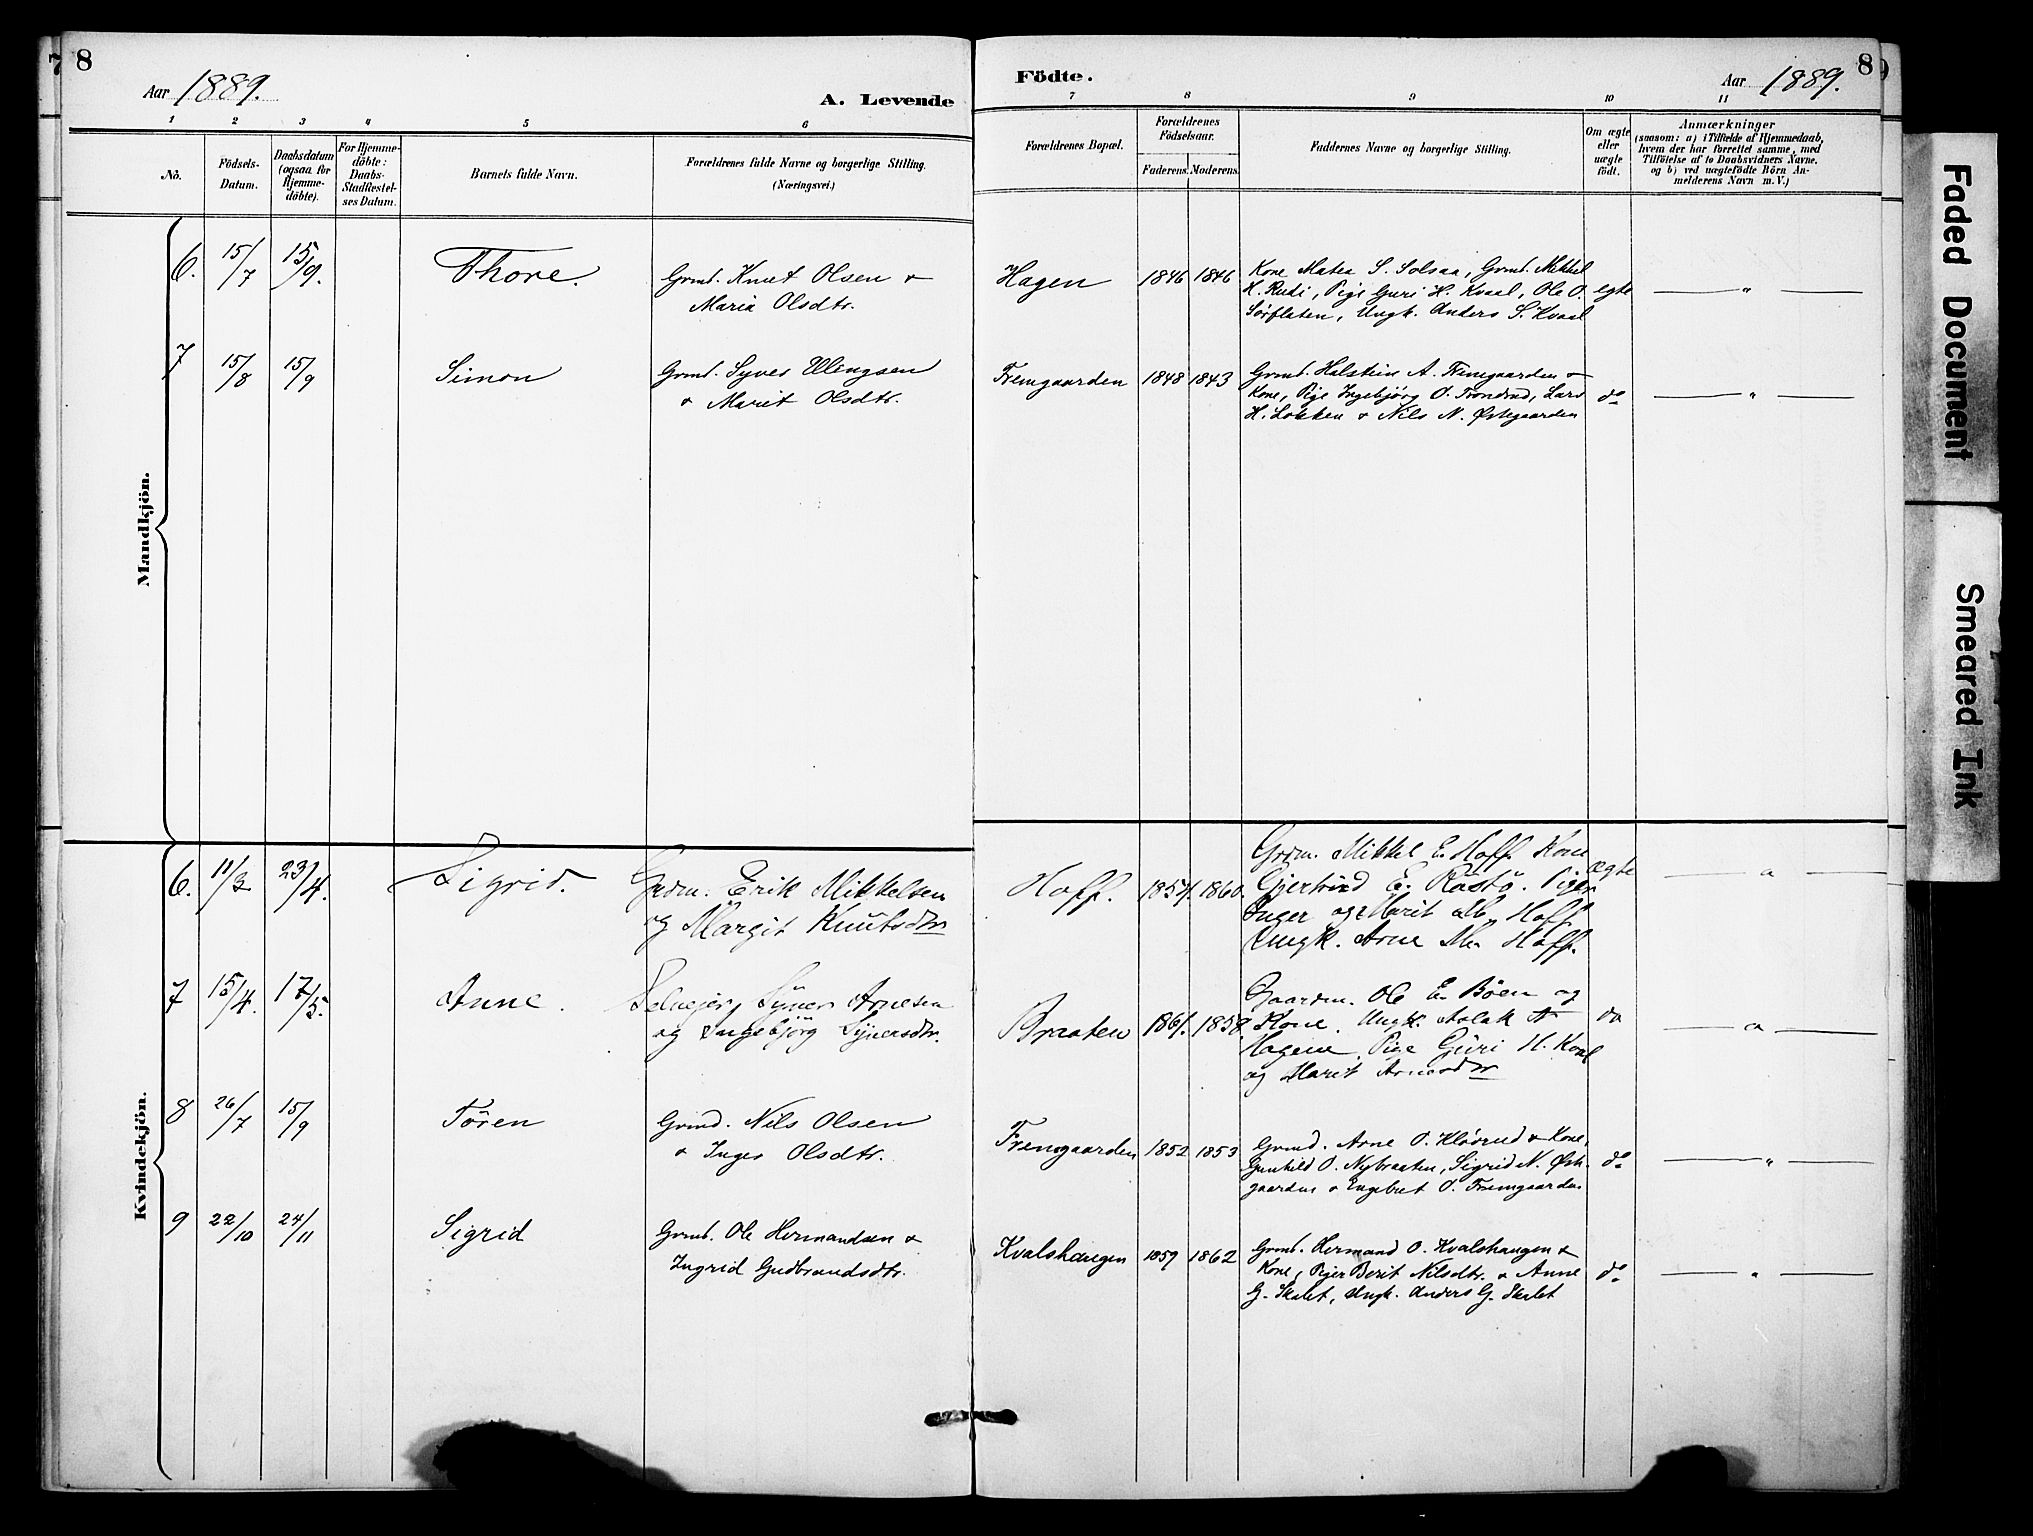 8
Aar 1889.
A. Levende
Födte.
Aar 1889.
8
1 2 3 4 5 6 7 8 9 10 11
No.
Födsels-
Datum.
Daabsdatum
(ogsaa for
Hjemme-
döbte).
For Hjemme-
döbte:
Daabs-
Stadfæstel-
ses Datum.
Barnets fulde Navn.
Forældrenes fulde Navne og borgerlige Stilling.
(Næringsvei.)
Forældrenes Bopæl.
Forældrenes
Födselsaar.
Faderens. Moderens.
Faddernes Navne og borgerlige Stilling.
Om ægte
eller
uægte
födt.
Anmærkninger
(saasom: a) i Tilfælde af Hjemmedaab,
hvem der har forrettet samme, med
Tilföielse af to Daabsvidners Navne.
og b) ved uægtefödte Börn An-
melderens Navn m. V.)
Mandkjön.
6. 15/7 15/9. Thore.
Grmd. Knut Olsen &
Maria Olsdtr.
Hagen 1846 1846
Kone Matea S. Solsaa, Grmd. Mikkel
H. Rudi, Pige Guri H. Kvaal, Ole O.
Sörflaten, Ungk. Anders S. Kvaal
egte — " —
7 15/8 15/9 Simon
Grmd. Syver Ellingsen
& Marit Olsdtr.
Fremgaarden 1848 1843
Grmd. Halstein A. Fremgaarden &
Kone, Pige Ingebjörg O. Trondrud, Lars
H. Lokken & Nils N. Østegaarden
do — " —
Kvindekjön.
6. 11/3 23/4. Sigrid.
Grdm. Erik Mikkelsen
og Margit Knutsdtr
Hoff. 1857. 1860.
Grdm. Mikkel E. Hoff Kone
Gjertrud E. Rastö. Piger
Inger og Marit M. Hoff
Ungk. Arne M. Hoff.
ægte — " —
7 15/4. 17/5. Anne.
Selveier Syver Arnesen
og Ingebjörg Syversdtr.
Braaten 1861. 1858.
Gaardm. Ole E. Böen og
Kone. Ungk. Aslak A
Hagene. Pige Guri H. Kvaal
og Marit Arnesdtr
do — " —
8 26/7 15/9 Tören
Grmd. Nils Olsen
& Inger Olsdtr.
Fremgaarden 1852 1853
Grmd. Arne O. Klövrud & Kone,
Gunhild O. Nybraaten, Sigrid N. Øst-
gaarden & Engebret O. Fremgaarden
do — " —
9 22/10 24/11 Sigrid
Grmd. Ole Hermandsen &
Ingrid Gudbrandsdtr.
Kvalshaugen 1859 1862
Grmd. Hermand O. Kvalshaugen &
Kone, Piger Berit Nilsdtr. & Anne
G. Skalet, Ungk. Anders G. Skalet
do — " —
Faded Document
Smeared Ink